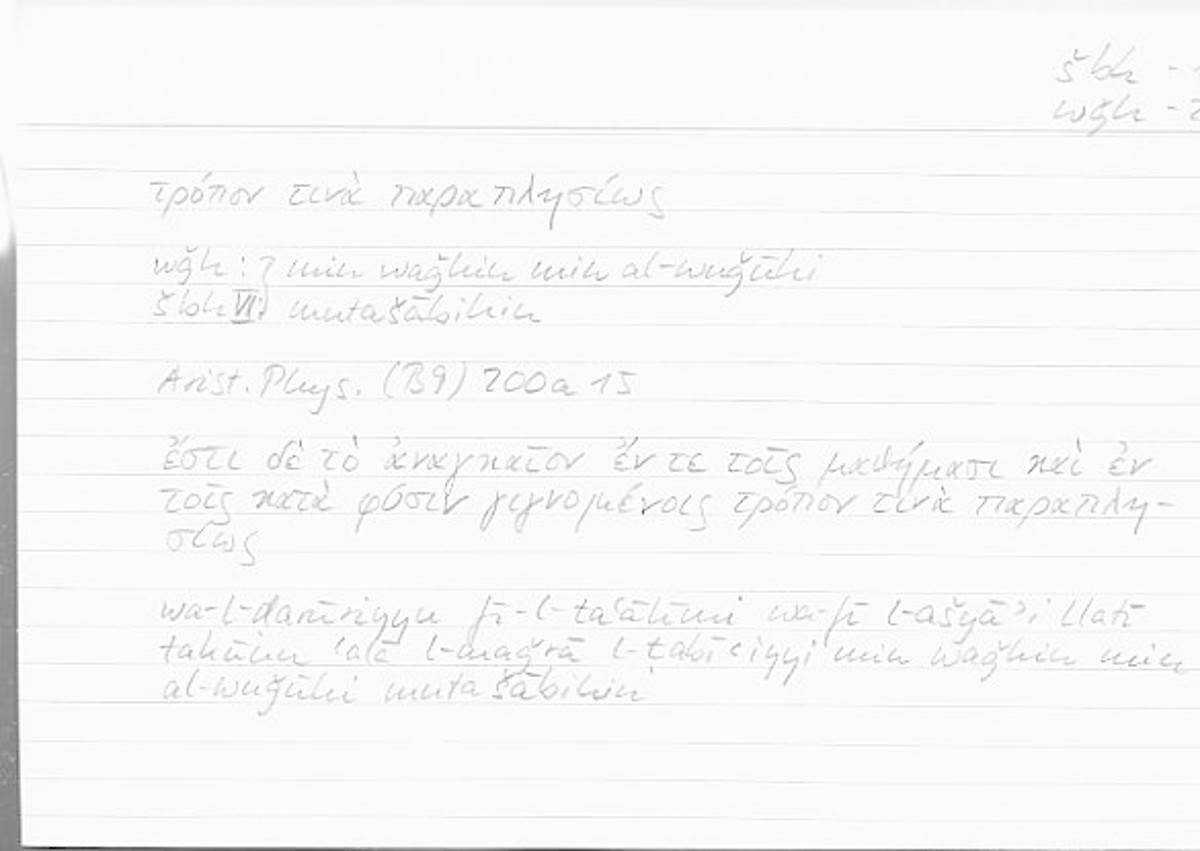 šbh -
wǧh -
τρόπον τινὰ παραπλησίως
wǧh : } min waǧhin min al-wuǧūhi
šbh VI: } mutašābihin
Arist. Phys. (B9) 200a 15
ἔστι δὲ τὸ ἀναγκαῖον ἔν τε τοῖς μαθήμασι καὶ ἐν
τοῖς κατὰ φύσιν γιγνομένοις τρόπον τινὰ παραπλη-
σίως
wa-l-ḍarūriyyu fī-l-taʿālīmi wa-fī l-ašyāʾi llatī
takūnu ʿalā l-maǧrā l-ṭabīʿiyyi min waǧhin min
al-wuǧūhi mutašābihin